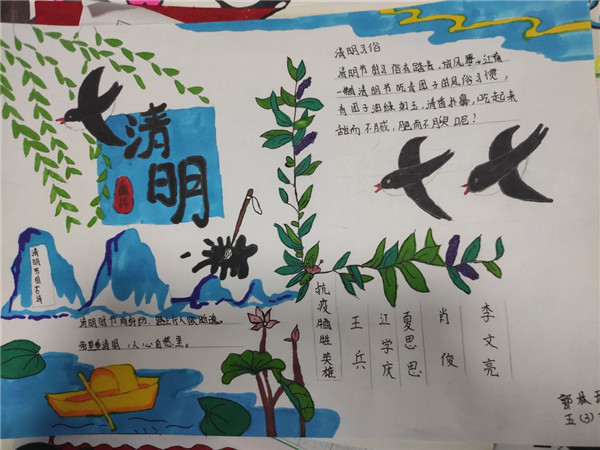 清明
清明习俗
清明节的习俗有踏青、放风筝。江南
一带清明节吃青团子的风俗习惯,
青团子油绿如玉,清香扑鼻,吃起来
甜而不腻,肥而不腴呢!
清明节的古诗
清明时节雨纷纷,路上行人欲断魂。
人心自愁里。
抗疫牺牲英雄
王兵
江学庆
夏思思
肖俊
李文亮
五(3)